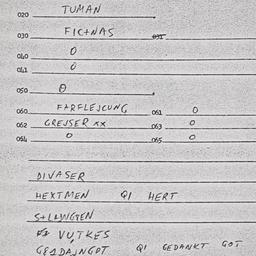 020 TUMAN
030 FICTNAS 031
040 0
041 0
050 0
060 FARFLEJCUNG 061 0
062 GREJSER XX 063 0
064 0 065 0
DIVASER
HEXTMEN QI HERT
VUTKES
QI GEDANKT GOT